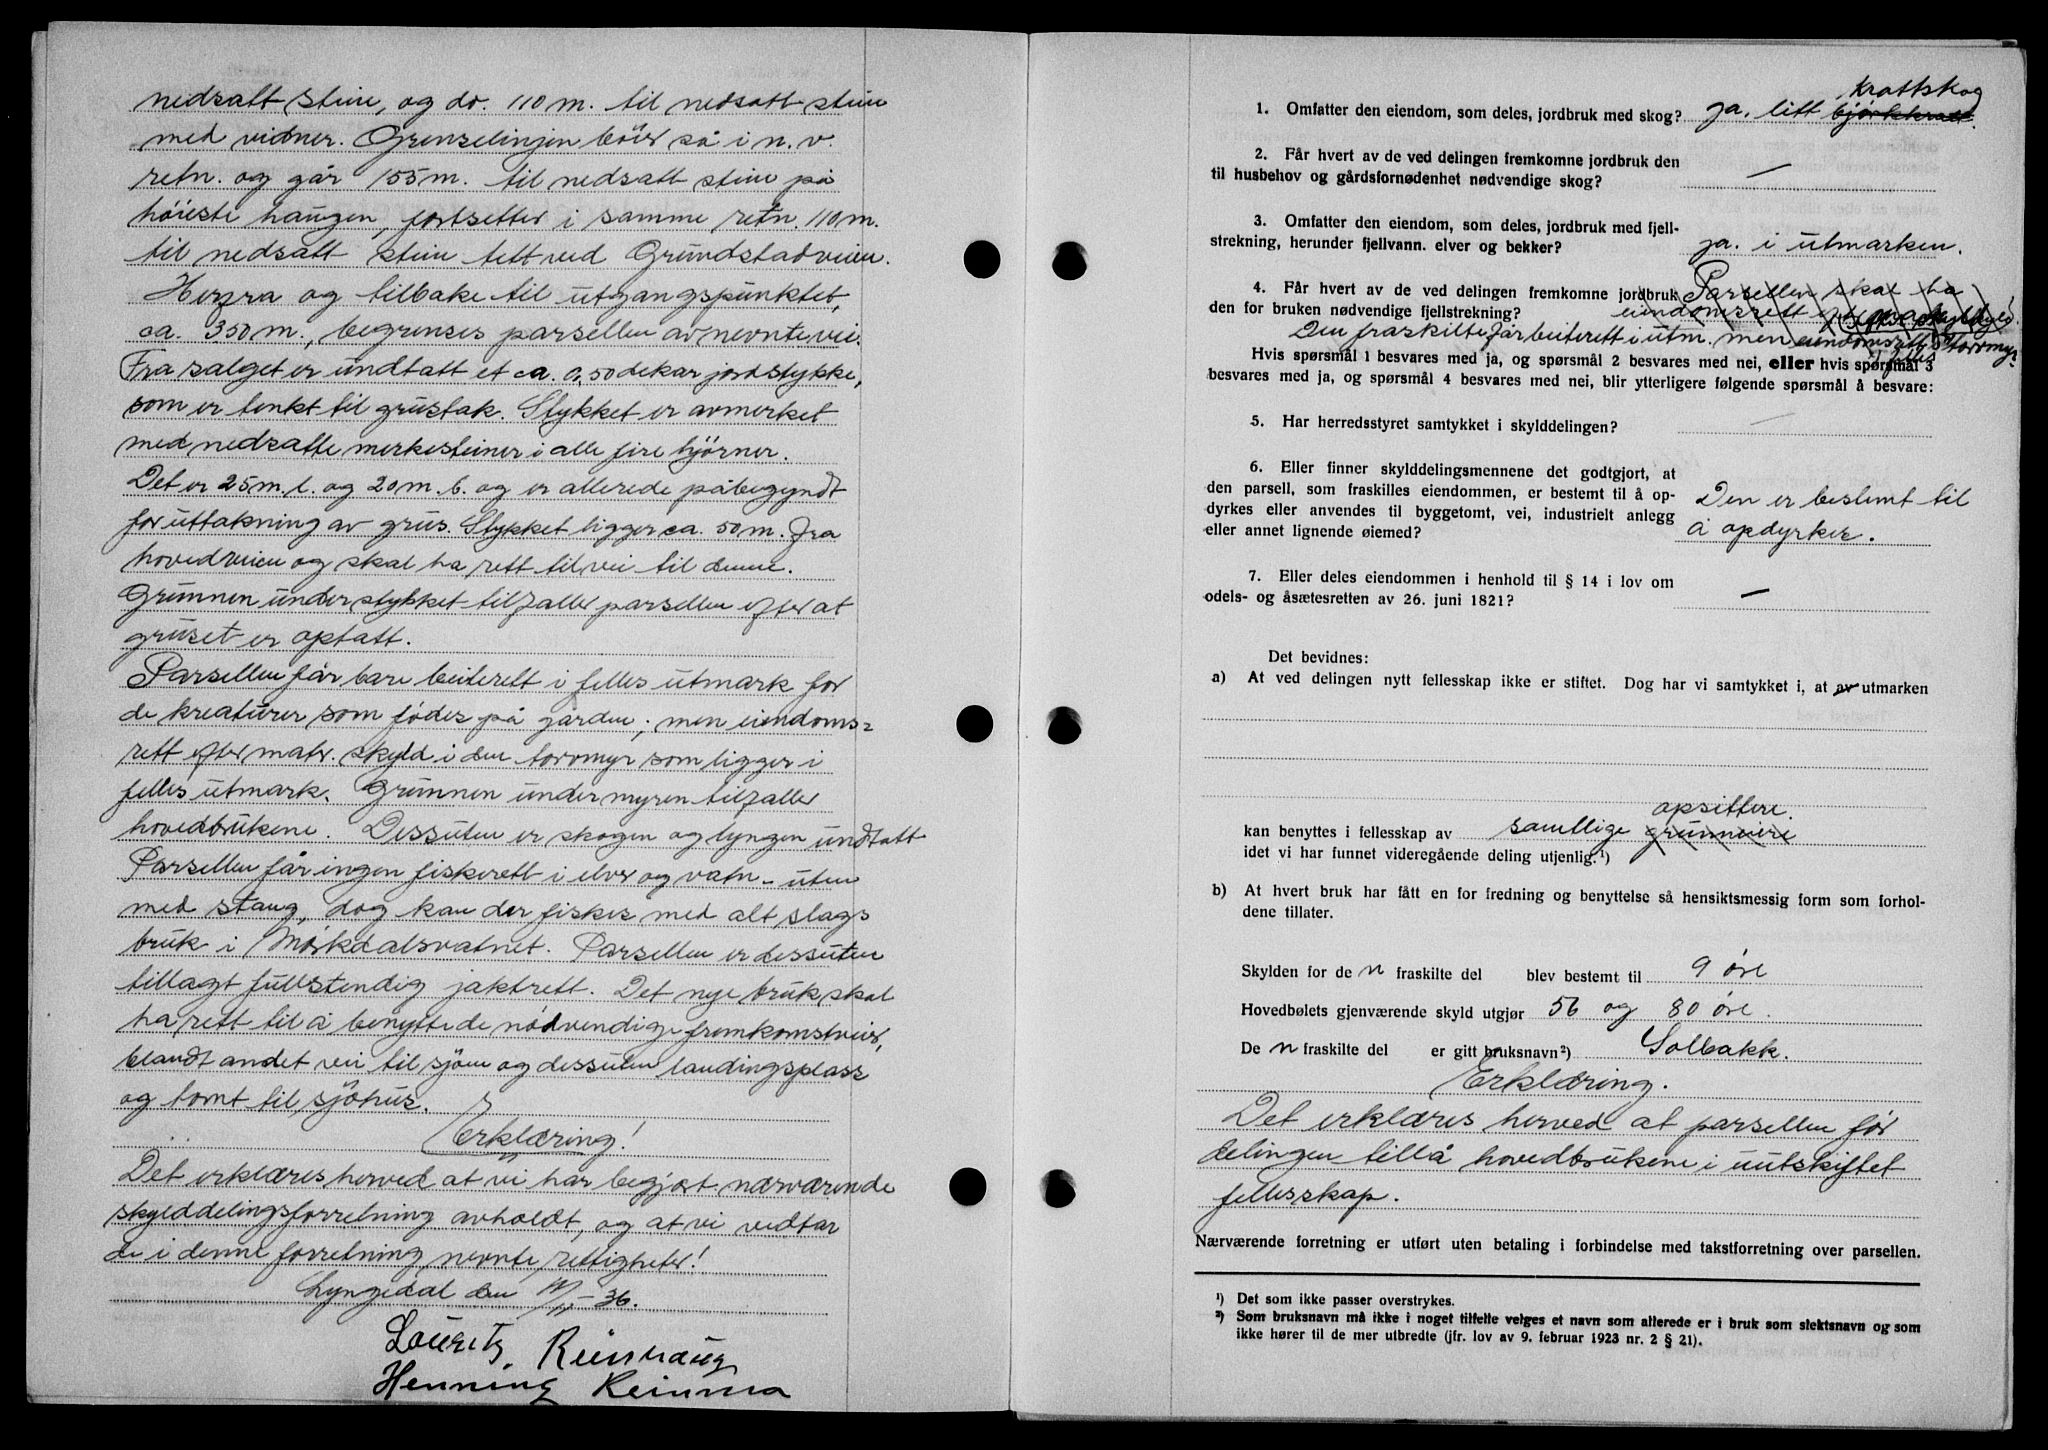 nedsatt stein, og do. 110 m. til nedsatt stein
med vidner. Grenselinjen böier så i n. v.
retn. og går 155 m. til nedsatt stein på
höieste haugen, fortsetter i samme retn. 110 m.
til nedsatt stein tett ved Grundstadveien.
Herfra og tilbake til utgangspunktet,
ca. 350 m., begrenses parsellen av nevnte vei.
Fra salget er undtatt et ca. 0,50 dekar jordstykke,
som er tenkt til grustak. Stykket er avmerket
med nedsatte merkesteiner i alle fire hjörner.
Det er 25 m. l. og 20 m. b. og er allerede påbegyndt
for uttakning av grus. Stykket ligger ca. 50 m. fra
hovedveien og skal ha rett til vei til denne.
Grunnen under stykket tilfaller parsellen efter at
gruset er optatt.
Parsellen får bare beiterett i felles utmark for
de kreaturer som födes på gården; men eiendoms-
rett efter matr. skyld i den torvmyr som ligger i
felles utmark. Grunnen under myren tilfaller
hovedbrukene. Dessuten er skogen og lyngen undtatt
Parsellen får ingen fiskerett i elver og vatn - uten
med stang, dog kan der fiskes med alt slags
bruk i Mörkdalsvatnet. Parsellen er dessuten
tillagt fullstendig jaktrett. Det nye bruk skal
ha rett til å benytte de nödvendige fremkomstveier,
blandt andet vei til sjöen og dessuten landingsplass
og tomt til sjöhus.
Erklæring!
Det erklæres herved at vi har begjært nærværende
skylddelingsforretning avholdt, og at vi vedtar
de i denne forretning nevnte rettigheter!
Lyngedal den 11/11-36.
Lauritz Reinshaug
Henning
krattskog
1. Omfatter den eiendom, som deles, jordbruk med skog? ja. litt bjørkkratt.
2. Får hvert av de ved delingen fremkomne jordbruk den
til husbehov og gårdsfornødenhet nødvendige skog? —
3. Omfatter den eiendom, som deles, jordbruk med fjell-
strekning, herunder fjellvann, elver og bekker? ja. i utmarken.
4. Får hvert av de ved delingen fremkomne jordbruk Parsellen skal ha
den for bruken nødvendige fjellstrekning? eiendomsrett
Den fraskilte får beiterett i utm. men eiendomsrett i torvmyr.
Hvis spørsmål 1 besvares med ja, og spørsmål 2 besvares med nei, eller hvis spørsmål 3
besvares med ja, og spørsmål 4 besvares med nei, blir ytterligere følgende spørsmål å besvare:
5. Har herredsstyret samtykket i skylddelingen? —
6. Eller finner skylddelingsmennene det godtgjort, at
den parsell, som fraskilles eiendommen, er bestemt til å op- Den er bestemt til
dyrkes eller anvendes til byggetomt, vei, industrielt anlegg
eller annet lignende øiemed? å opdyrkes.
7. Eller deles eiendommen i henhold til § 14 i lov om
odels- og åsætesretten av 26. juni 1821? —
Det bevidnes:
a) At ved delingen nytt fellesskap ikke er stiftet. Dog har vi samtykket i, at av utmarken
opsittere.
kan benyttes i fellesskap av samtlige grunneiere
idet vi har funnet videregående deling utjenlig.¹)
b) At hvert bruk har fått en for fredning og benyttelse så hensiktsmessig form som forhol-
dene tillater.
Skylden for de n fraskilte del blev bestemt til 9 öre
Hovedbølets gjenværende skyld utgjør 56 og 80 öre.
De n fraskilte del er gitt bruksnavn²) Solbakk.
Erklæring.
Det erklæres herved at parsellen för
delingen tillå hovedbrukene i uutskiftet
fellesskap.
Nærværende forretning er utført uten betaling i forbindelse med takstforretning over parsellen.
¹) Det som ikke passer overstrykes.
²) Som bruksnavn må ikke i noget tilfelle velges et navn som allerede er i bruk som slektsnavn og som
ikke hører til de mer utbredte (jfr. lov av 9. februar 1923 nr. 2 § 21).